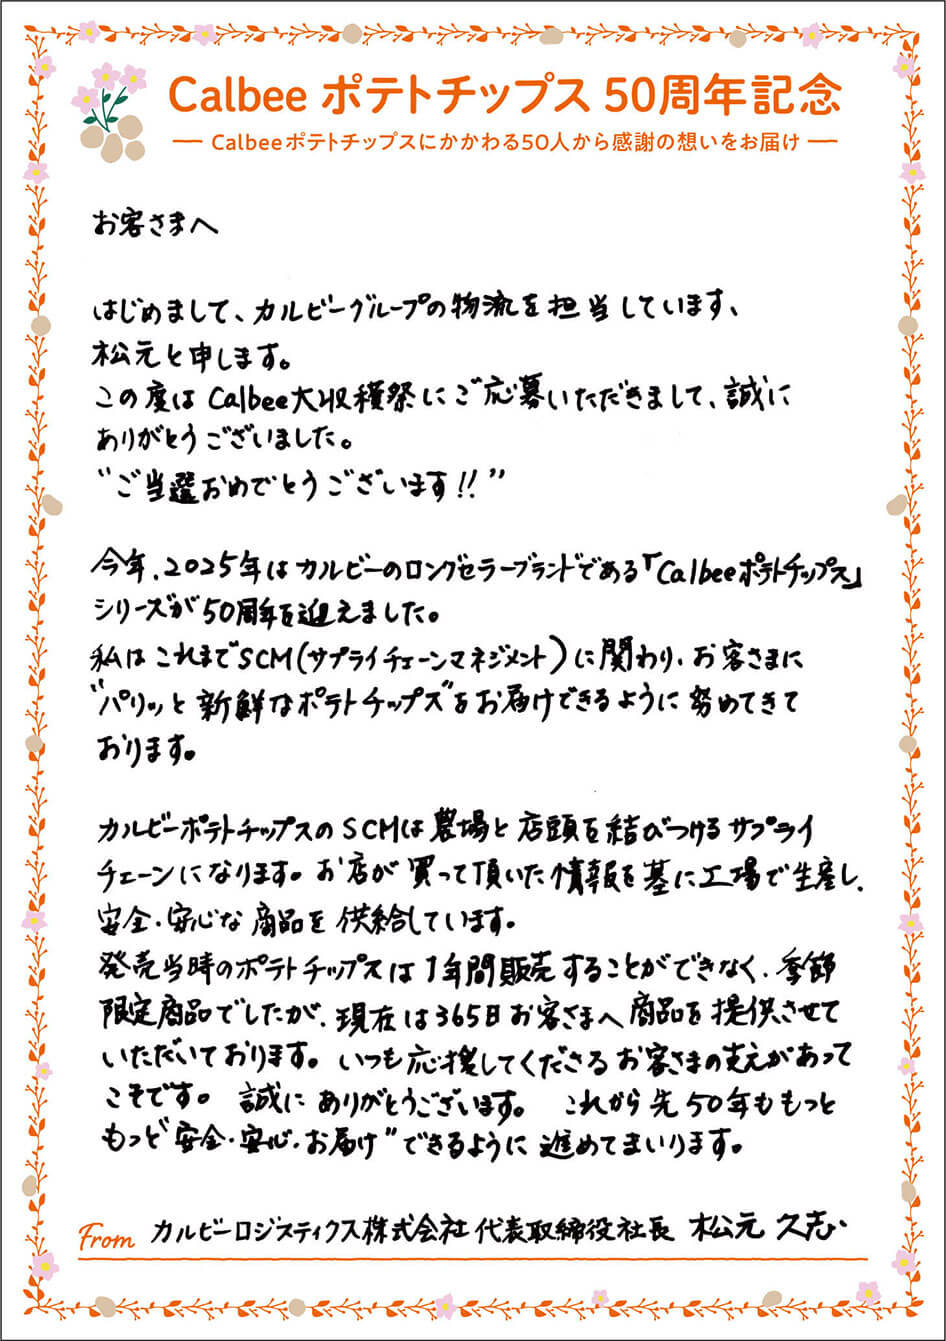 Calbee ポテトチップス 50周年記念
Calbeeポテトチップスにかかわる50人から感謝の想いをお届け
お客さまへ
はじめまして、カルビーグループの物流を担当しています、
松元と申します。
この度は Calbee大収穫祭にご応募いただきまして、誠に
ありがとうございました。
“ご当選おめでとうございます!!”
今年、2025年はカルビーのロングセラーブランドである「Calbeeポテトチップス」
シリーズが50周年を迎えました。
私はこれまでSCM(サプライチェーンマネジメント)に関わり、お客さまに
“パリッと新鮮なポテトチップス”をお届けできるように努めてきて
おります。
カルビーポテトチップスのSCMは農場と店頭を結びつけるサプライ
チェーンになります。お店が買って頂いた情報を基に工場で生産し、
安全・安心な商品を供給しています。
発売当時のポテトチップスは1年間販売することができなく、季節
限定商品でしたが、現在は365日お客さまへ商品を提供させて
いただいております。いつも応援してくださるお客さまの支えがあって
こそです。誠にありがとうございます。これから先50年ももっと
もっと“安全・安心・お届け”できるように進めてまいります。
From カルビーロジスティクス株式会社 代表取締役社長 松元 久志